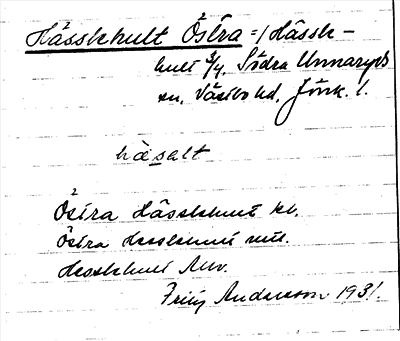 Hässlehult Östra =/Hässle-
hult 3/4, Södra Unnaryds
sn, Västbo hd, Jönk. l.
hæsalt
Östra Hässlehult kl.
Östra Hesslehult
Hesslehult Anv.
Frity Anderson 1931.